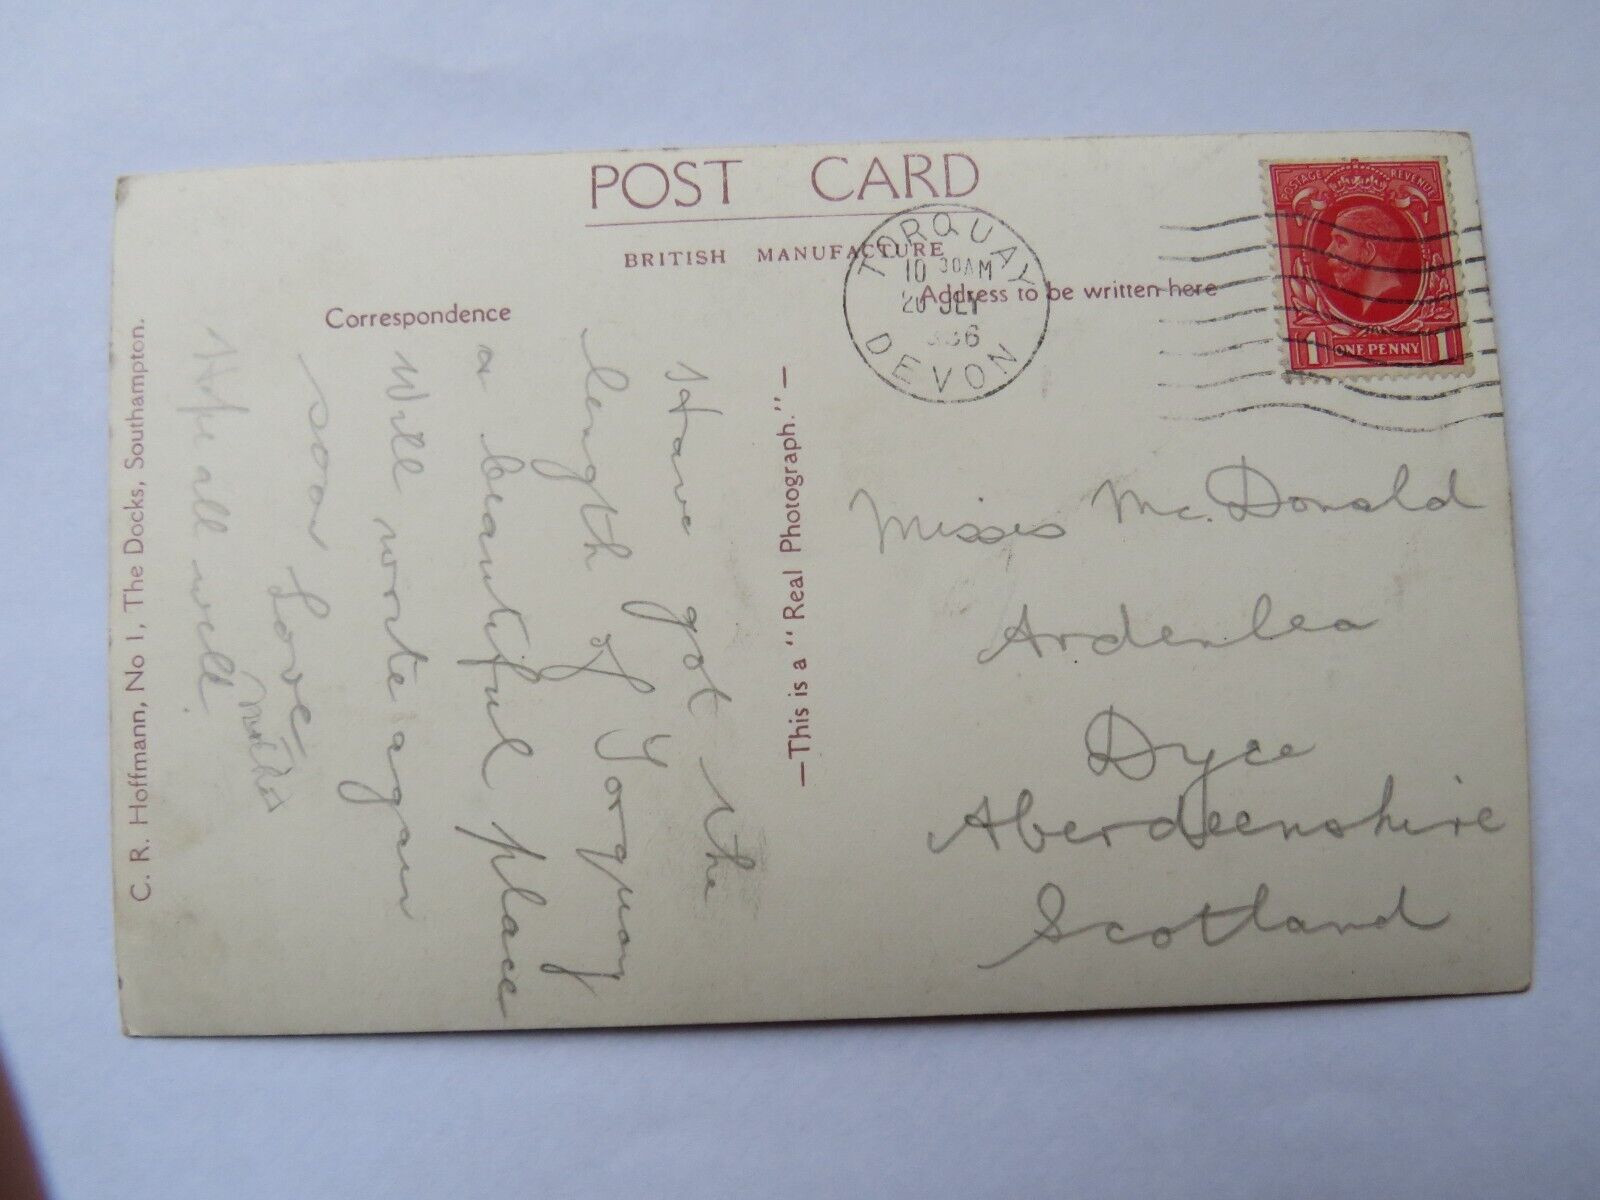 POST CARD
BRITISH MANUFACTURE
Correspondence
Address to be written here
TORQUAY
10 30AM
20 JLY
DEVON
POSTAGE REVENUE
1 ONE PENNY 1
C. R. Hoffmann, No 1, The Docks, Southampton.
—This is a "Real Photograph."—
Have got the
length of Torquay
a beautiful place
Will write again
soon
Love
Hope all well.
Misses Mc. Donald
Ardenlea
Dyce
Aberdeenshire
Scotland